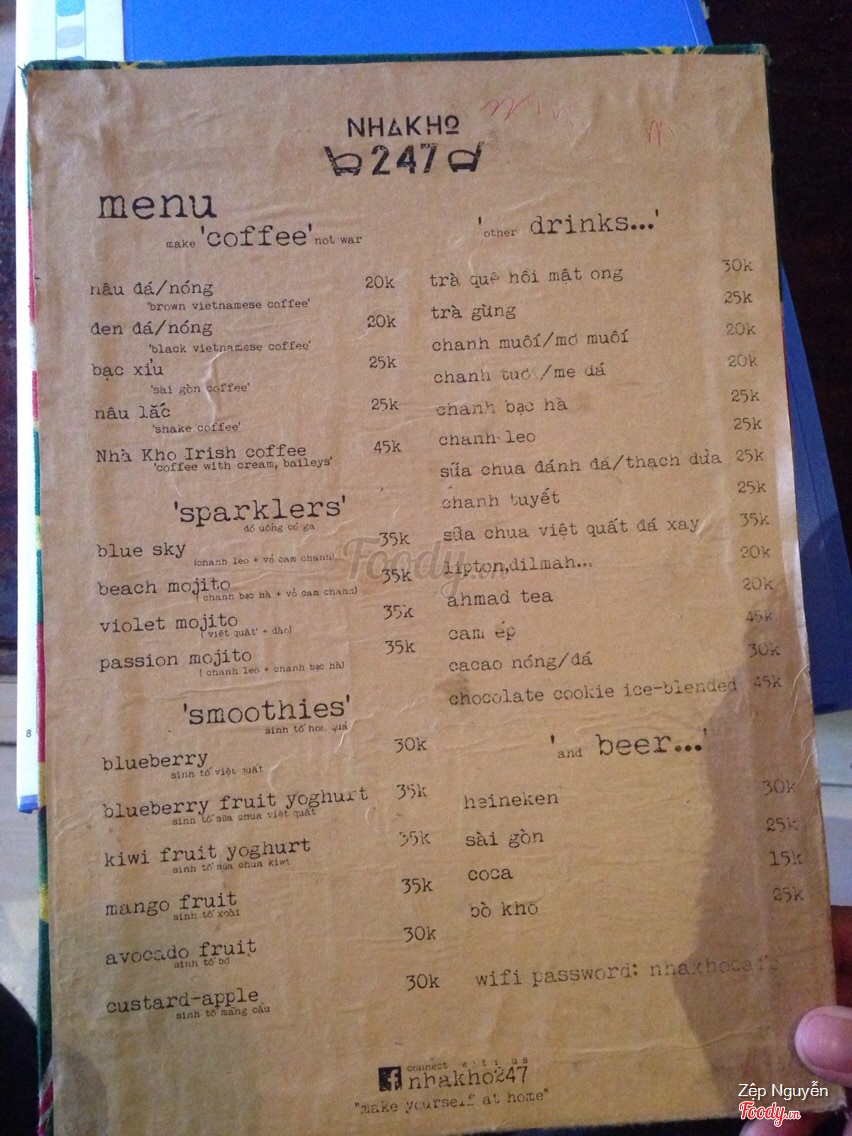 NHAKHO
247
menu
make 'coffee' not war
nâu đá/nóng 20k
'brown vietnamese coffee'
đen đá/nóng 20k
'black vietnamese coffee'
bạc xỉu 25k
'sài gòn coffee'
nâu lắc 25k
'shake coffee'
Nhà Kho Irish coffee 45k
'coffee with cream, baileys'
'sparklers'
đồ uống có ga
blue sky 35k
(chanh leo + vỏ cam chanh)
beach mojito 35k
(chanh bạc hà + vỏ cam chanh)
violet mojito 35k
(việt quất + đào)
passion mojito 35k
(chanh leo + chanh bạc hà)
'smoothies'
sinh tố hoa quả
blueberry 30k
sinh tố việt quất
blueberry fruit yoghurt 35k
sinh tố sữa chua việt quất
kiwi fruit yoghurt 35k
sinh tố sữa chua kiwi
mango fruit 35k
sinh tố xoài
avocado fruit 30k
sinh tố bơ
custard-apple 30k
sinh tố mãng cầu
'other drinks...'
trà quế hồi mật ong 30k
trà gừng 25k
chanh muối/mơ muối 20k
chanh tươi/me đá 20k
chanh bạc hà 25k
chanh leo 25k
sữa chua đánh đá/thạch dừa 25k
chanh tuyết 25k
sữa chua việt quất đá xay 35k
lipton,dilmah... 20k
ahmad tea 20k
cam ép 45k
cacao nóng/đá 30k
chocolate cookie ice-blended 45k
'and beer...'
heineken 30k
sài gòn 25k
coca 15k
bò khô 25k
wifi password: nhakhocafe
connect with us
nhakho247
"make yourself at home"
Foody.vn
Zệp Nguyễn
Foody.vn